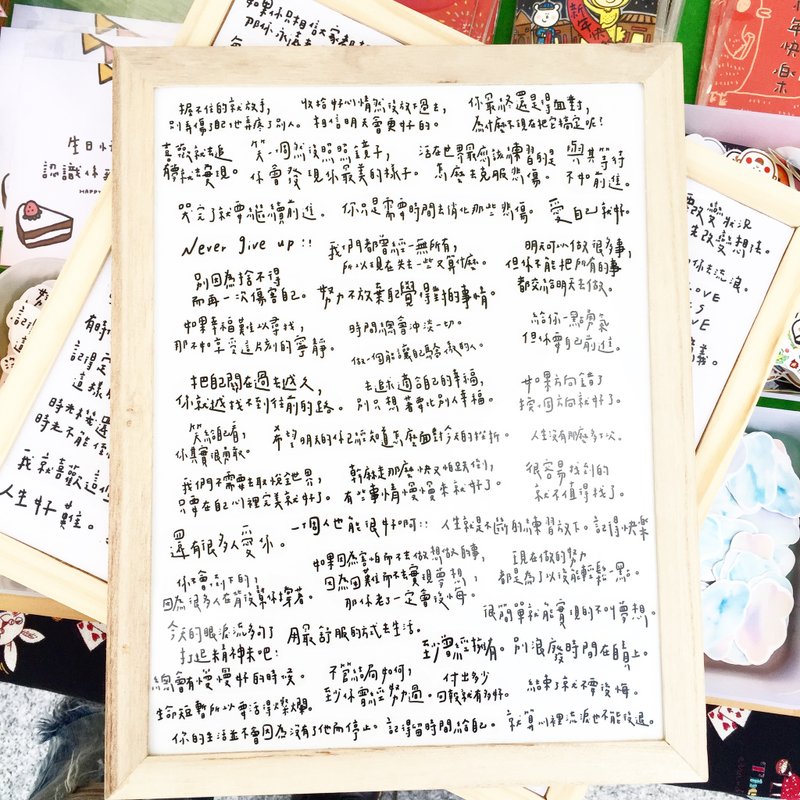 握不住的就放手,
別弄傷了自己也弄疼了別人。
收拾好心情然後放下過去,
相信明天會更好的。
你最終還是得面對,
為什麼不現在把它搞定呢?
喜歡就去追
醒就去實現。
笑一個然後照照鏡子,
你會發現你最美的樣子。
活在世界最應該練習的是
怎麼去克服悲傷。
與其等待
不如前進。
哭完了就要繼續前進。
你只是需要時間去消化那些悲傷。
愛自己就好。
Never give up !!
我們都曾經一無所有,
所以現在失去一些又算什麼。
明天可以做很多事,
但你不能把所有的事
都交給明天去做。
別因為捨不得
而再一次傷害自己。
努力不放棄自己覺得對的事情。
如果幸福難以尋找,
那不如享受這片刻的寧靜。
時間總會沖淡一切。
做一個能讓自己驕傲的人。
給你一點勇氣
但你要自己前進。
把自己關在過去越久,
你就越找不到往前的路。
去追求適合自己的幸福,
別只想著要比別人幸福。
如果方向錯了
換個方向就好了。
笑給自己看,
你真實很勇敢。
希望明天的你已經知道怎麼面對今天的挫折。
人生沒有那麼多下次。
我們不需要去取悅全世界,
只要在自己心裡完美就好了。
幹麻走那麼快又怕跌倒,
有些事情慢慢來就好了。
很容易找到的
就不值得找了。
還有很多人愛你。
一個人也能很好啊!!
人生就是不斷的練習放下。
記得快樂
你不會倒下的,
因為很多人在背後幫你撐著。
如果因為害怕而不去做想做的事,
因為困難而不去實現夢想,
那你老了一定會後悔。
現在做的努力
都是為了以後能輕鬆一點。
很簡單就能實現的不叫夢想。
今天的眼淚流夠了
打起精神來吧!
用最舒服的方式去生活。
別浪費時間在自卑上。
總會有慢慢好的時候。
不管結局如何,
至少你曾經努力過。
付出多少
回報就有多好。
結束了就不要後悔。
生命短暫所以要活得燦爛。
你的生活並不會因為沒有了他而停止。
記得留時間給自己。
就算心裡流淚也不能後退。
新年快樂
HAPPY
有時
人生好難。
LOVE